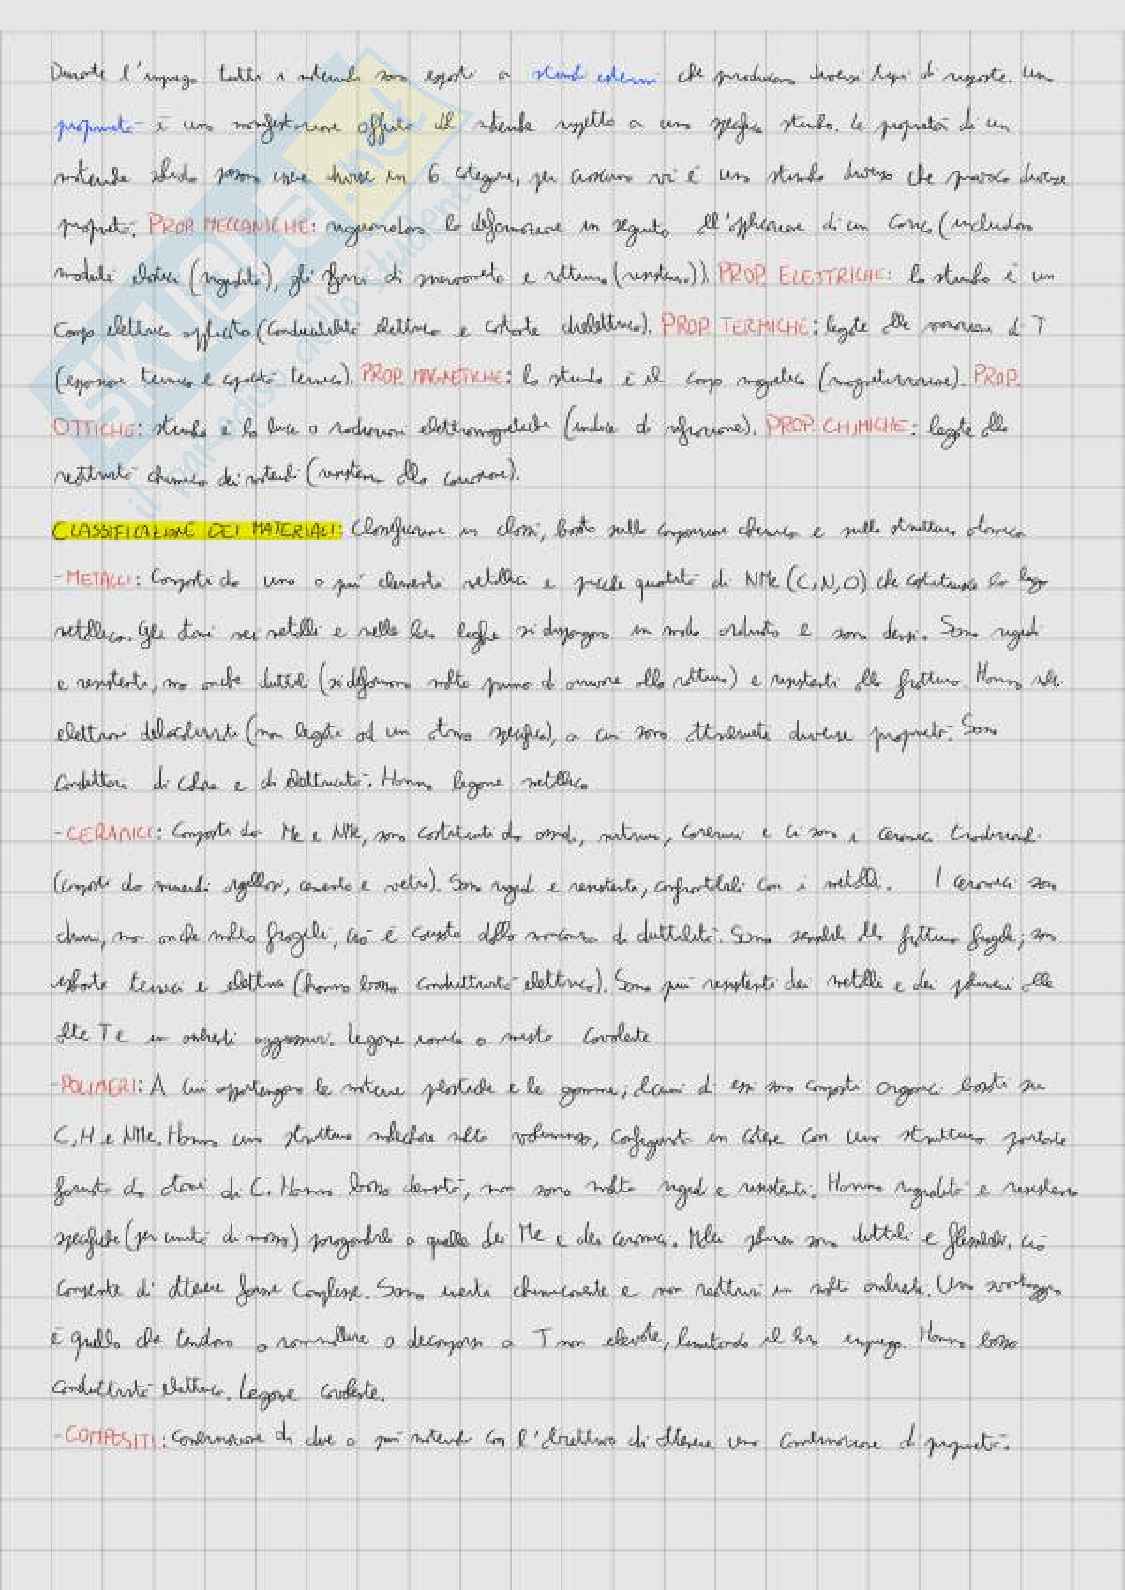 Durante l'impiego tutti i materiali sono esposti a stimoli esterni che producono diversi tipi di risposte. Una
proprietà è una manifestazione offerta dal materiale rispetto a uno specifico stimolo. Le proprietà di un
materiale solido possono essere divise in 6 categorie, per ciascuna vi è uno stimolo diverso che provoca diverse
proprietà. PROP. MECCANICHE: riguardano la deformazione in seguito all'applicazione di un carico (includono
moduli elastici (rigidità), gli sforzi di snervamento e rottura (resistenza)). PROP. ELETTRICHE: lo stimolo è un
campo elettrico applicato (conducibilità elettrica e costante dielettrica). PROP. TERMICHE: legate alle variazioni di T
(espansione termica e capacità termica). PROP. MAGNETICHE: lo stimolo è il campo magnetico (magnetizzazione). PROP.
OTTICHE: stimolo è la luce o radiazioni elettromagnetiche (indice di rifrazione). PROP. CHIMICHE: legate alla
reattività chimica dei materiali (resistenza alla corrosione).
CLASSIFICAZIONE DEI MATERIALI: Classificazione in classi, basata sulla composizione chimica e sulla struttura atomica
-METALLI: Composti da uno o più elementi metallici e piccole quantità di NMe (C,N,O) che costituiscono la lega
metallica. Gli atomi nei metalli e nelle loro leghe si dispongono in modo ordinato e sono densi. Sono rigidi
e resistenti, ma anche duttili (si deformano molto prima di arrivare alla rottura) e resistenti alla frattura. Hanno
elettroni delocalizzati (non legati ad un atomo specifico), a cui sono attribuite diverse proprietà. Sono
conduttori di calore e di elettricità. Hanno legame metallico
-CERAMICI: Composti da Me e NMe, sono costituiti da ossidi, nitruri, carburi e ci sono i ceramici tradizionali
(composti da minerali argillosi, cemento e vetro). Sono rigidi e resistenti, confrontabili con i metalli. I ceramici sono
duri, ma anche molto fragili, ciò è causato dalla mancanza di duttilità. Sono sensibili alla frattura fragile; sono
isolanti termici e elettrici (hanno bassa conduttività elettrica). Sono più resistenti dei metalli e dei polimeri alle
alte T e in ambienti aggressivi. Legame ionico o misto covalente
-POLIMERI: A cui appartengono le materie plastiche e le gomme; alcuni di essi sono composti organici basati su
C,H e NMe. Hanno una struttura molecolare molto voluminosa, configurata in catene con una struttura portante
formata da atomi di C. Hanno bassa densità, non sono molto rigidi e resistenti. Hanno rigidità e resistenza
specifiche (per unità di massa) paragonabili a quelle dei Me e dei ceramici. Molti polimeri sono duttili e flessibili, ciò
consente di ottenere forme complesse. Sono inerti chimicamente e non reattivi in molti ambienti. Uno svantaggio
è quello che tendono a rammollire o decomporsi a T non elevate, limitando il loro impiego. Hanno bassa
conduttività elettrica. Legame covalente.
-COMPOSITI: Combinazione di due o più materiali con l'obiettivo di ottenere una combinazione di proprietà.
SKUOLA.net
il paradiso dello studente